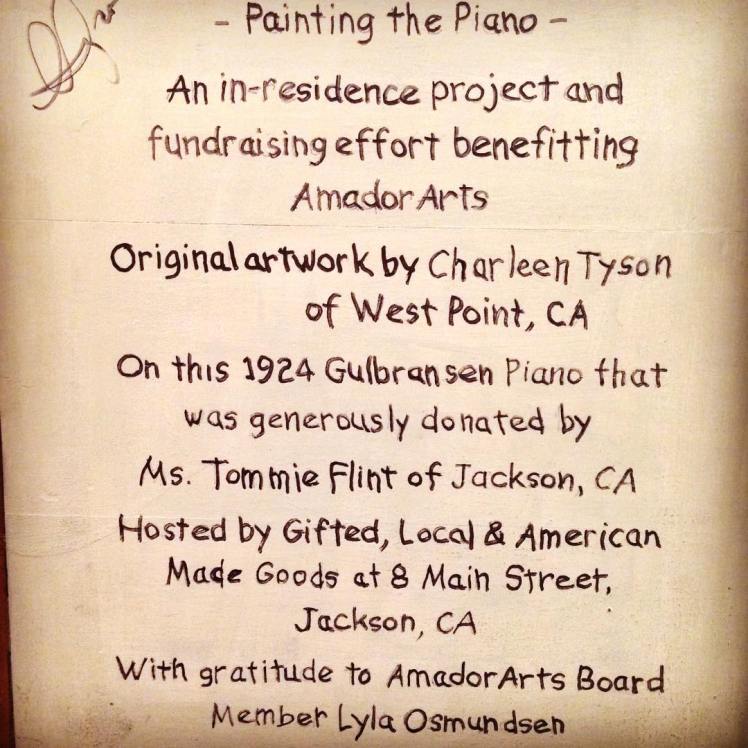 - Painting the Piano -
An in-residence project and
fundraising effort benefitting
Amador Arts
Original artwork by Charleen Tyson
of West Point, CA
On this 1924 Gulbransen Piano that
was generously donated by
Ms. Tommie Flint of Jackson, CA
Hosted by Gifted, Local & American
Made Goods at 8 Main Street,
Jackson, CA
With gratitude to AmadorArts Board
Member Lyla Osmundsen